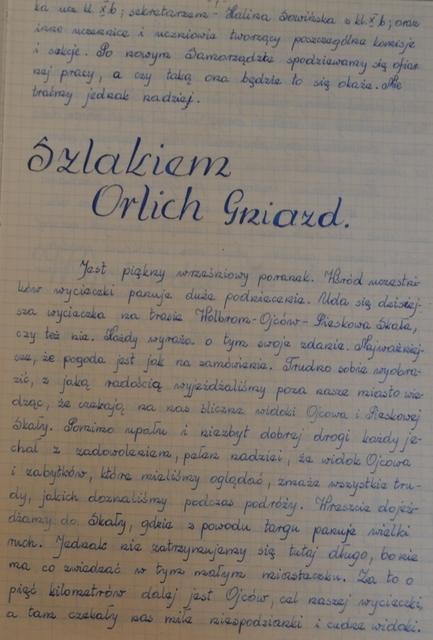 ka ucz. kl. Xb; sekretarzem - Halina Sowińska z kl. Xb; oraz
inne uczennice i uczniowie tworzący poszczególne komisje
i sekcje. Po nowym Samorządzie spodziewamy się ofiar-
nej pracy, a czy taką ona będzie to się okaże. Nie
traćmy jednak nadziei.
Szlakiem
Orlich Gniazd.
Jest piękny wrześniowy poranek. Wśród uczestni-
ków wycieczki panuje duże podniecenie. Uda się dzisiej-
sza wycieczka na trasie Wolbrom-Ojców-Pieskowa Skała,
czy też nie. Każdy wyraża o tym swoje zdanie. Najważniej-
sze, że pogoda jest jak na zamówienie. Trudno sobie wyobra-
zić, z jaką radością wyjeżdżaliśmy poza nasze miasto wie-
dząc, że czekają na nas śliczne widoki Ojcowa i Pieskowej
Skały. Pomimo upału i niezbyt dobrej drogi każdy je-
chał z zadowoleniem, pełen nadziei, że widok Ojcowa
i zabytków, które mieliśmy oglądać, zmaże wszystkie tru-
dy, jakich doznaliśmy podczas podróży. Wreszcie dojeż-
dżamy do Skały, gdzie z powodu targu panuje wielki
ruch. Jednak nie zatrzymujemy się tutaj długo, bo nie
ma co zwiedzać w tym małym miasteczku. Za to o
pięć kilometrów dalej jest Ojców, cel naszej wycieczki,
a tam czekały nas miłe niespodzianki i cudne widoki.